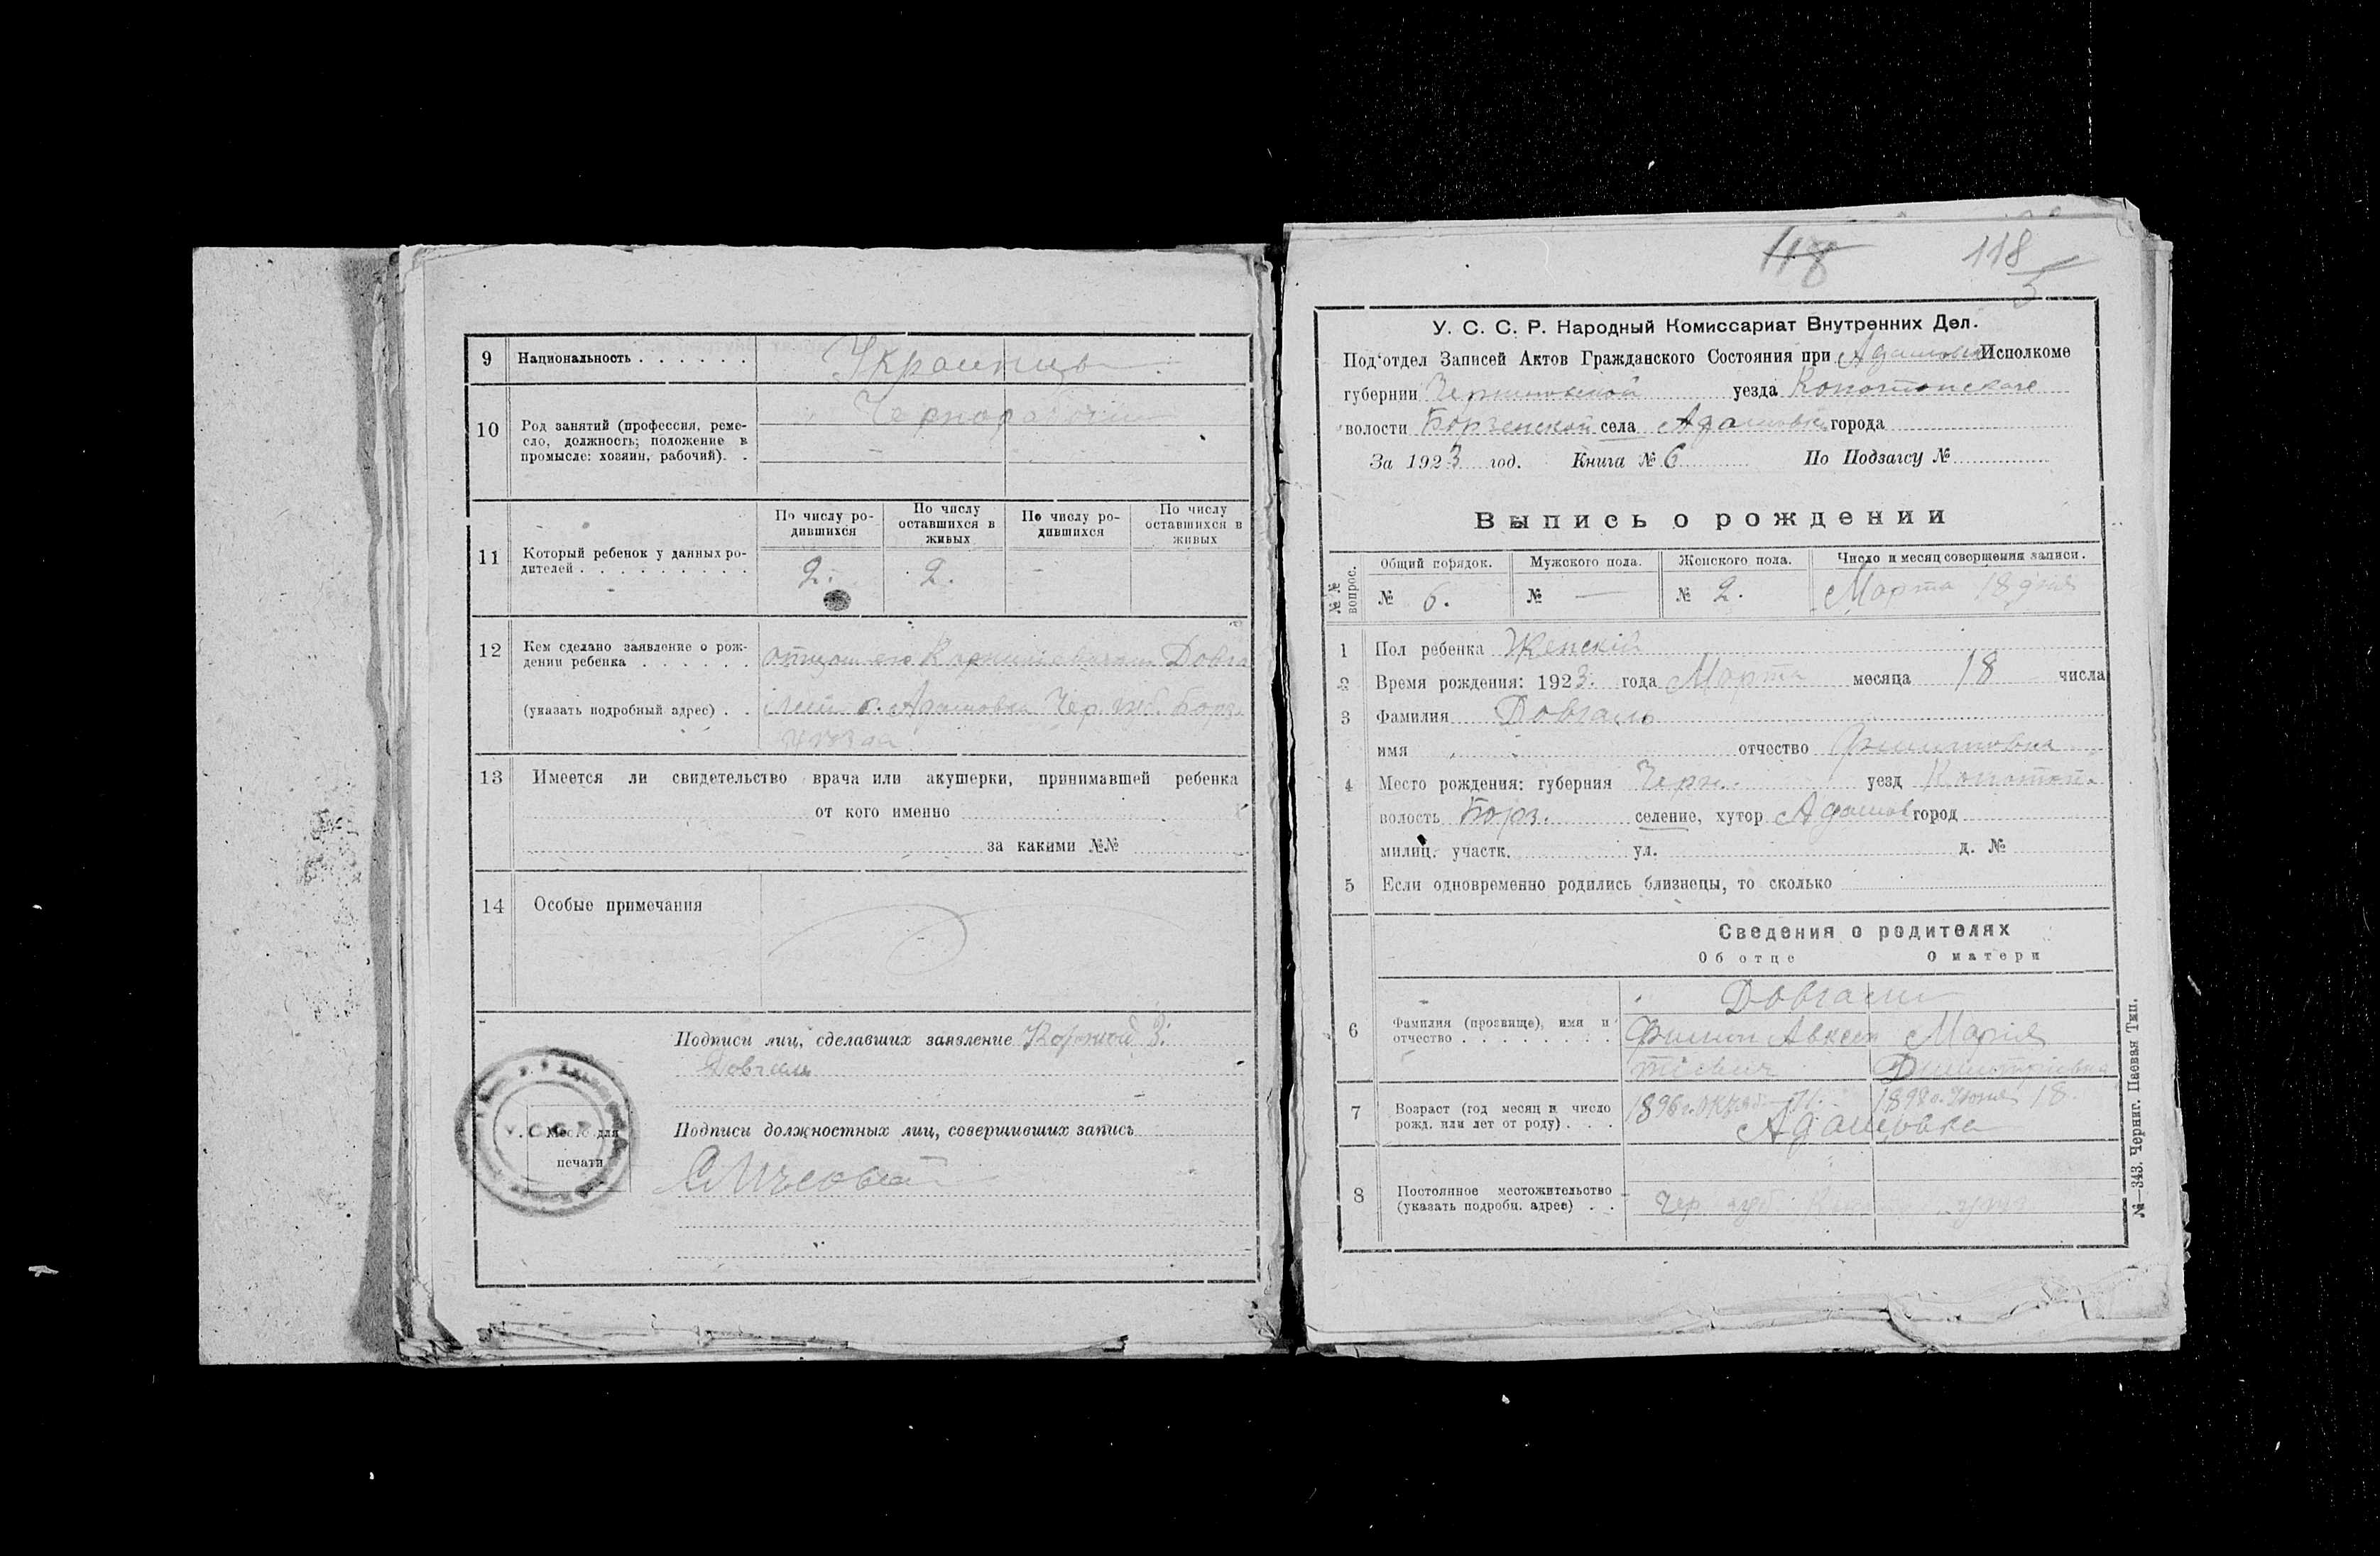 9 Национальность . . . . . . Украинцы
10 Род занятий (профессия, реме-
сло, должность; положение в
промысле: хозяин, рабочий). .
Чернорабочии
11 Который ребенок у данных ро-
дителей . . . . . . . . .
По числу ро-
дившихся
По числу
оставшихся в
живых
По числу ро-
дившихся
По числу
оставшихся в
живых
2. 2. —
12 Кем сделано заявление о рож-
дении ребенка . . . . . .
Довга
(указать подробный адрес) . .
с. Адамовка Чер. губ. Борз.
13 Имеется ли свидетельство врача или акушерки, принимавшей ребенка
от кого именно
за какими №№
14 Особые примечания
Подписи лиц, сделавших заявление
Довгаль
Подписи должностных лиц, совершивших запись
У. С. С. Р.
Место для
печати
118 118
5
У. С. С. Р. Народный Комиссариат Внутренних Дел.
Под‘отдел Записей Актов Гражданского Состояния при Адамовск Исполкоме
губернии Черниговской уезда Конотопского
волости Борзенской села Адамовки города
За 1923 год. Книга № 6 По Подзагсу №
Выпись о рождении
№№ вопрос.
Общий порядок. Мужского пола. Женского пола. Число и месяц совершения записи.
№ 6. № — № 2. Марта 18 дня
1 Пол ребенка Женскій
2 Время рождения: 1923. года Марта месяца 18 числа
3 Фамилия Довгаль
имя отчество Филиповна
4 Место рождения: губерния Черн. уезд Конотоп.
волость Борз. селение, хутор Адамов город
милиц. участк. ул. д. №
5 Если одновременно родились близнецы, то сколько
Сведения о родителях
Об отце О матери
6 Фамилия (прозвище), имя и
отчество . . . . . . . .
Довгали
Филип Авксен Мария
тіевич Димитріевна
7 Возраст (год месяц и число
рожд. или лет от роду) . . .
1896 г. 1898 г. 18.
Адамовка
8 Постоянное местожительство
(указать подробн. адрес) . .
Чер. губ.
№—343. Черниг. Паевая Тип.